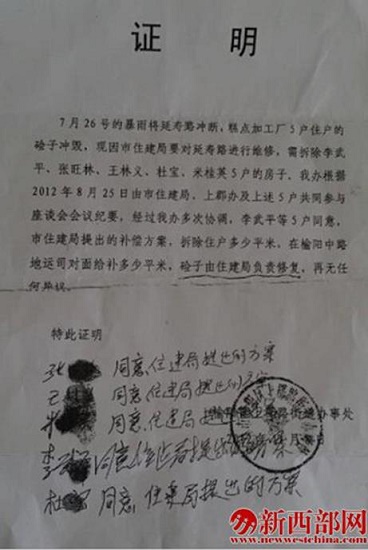 证 明
7月26号的暴雨将延寿路冲断，糕点加工厂5户住户的
硷子冲毁，现因市住建局要对延寿路进行维修，需拆除李武
平、张旺林、王林义、杜宝、米桂英5户的房子。我办根据
2012年8月25日由市住建局、上郡办及上述5户共同参与
座谈会会议纪要，经过我办多次协调，李武平等5户同意，
市住建局提出的补偿方案，拆除住户多少平米，在榆阳中路
地运司对面给补多少平米，硷子由住建局负责修复，再无任
何异议。
特此证明
张 同意住建局提出的方案
王 同意住建局提出的方案
米 同意住建局提出的方案
街道办事处
李 同意住建局提出的方案
月 日
杜 同意住建局提出的方案
新西部网
www.newestchina.com